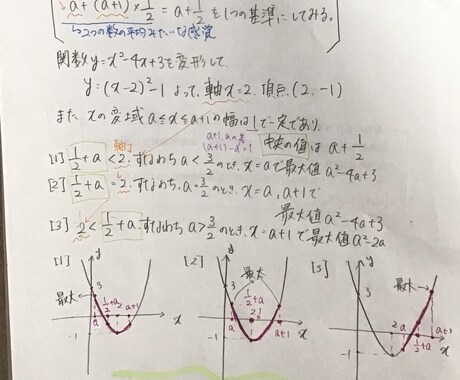 a+(a+1)×1/2 = a+1/2 を1つの基準にしてみる。
↳2つの数の平均みたいな感覚
関数y=x²-4x+3を変形して、
y=(x-2)²-1 よって、軸x=2, 頂点(2, -1)
また、xの変域 a≦x≦a+1の幅は1で一定であり、
a+1, aの差
(a+1)-a=1
中央の値は a+1/2
軸
[1] 1/2+a <2, すなわち a< 3/2 のとき、x=aで最大値 a²-4a+3
[2] 1/2+a =2, すなわち、a=3/2のとき、x=a, a+1で
最大値 a²-4a+3
[3] 2< 1/2+a, すなわち a>3/2のとき、x=a+1で最大値 a²-2a
[1] y 最大 3 a 1/2+a 2 a+1 x -1
[2] y 最大 3 1/2+a 2 a a+1 x -1
[3] y 最大 3 2 a 1/2+a a+1 x -1